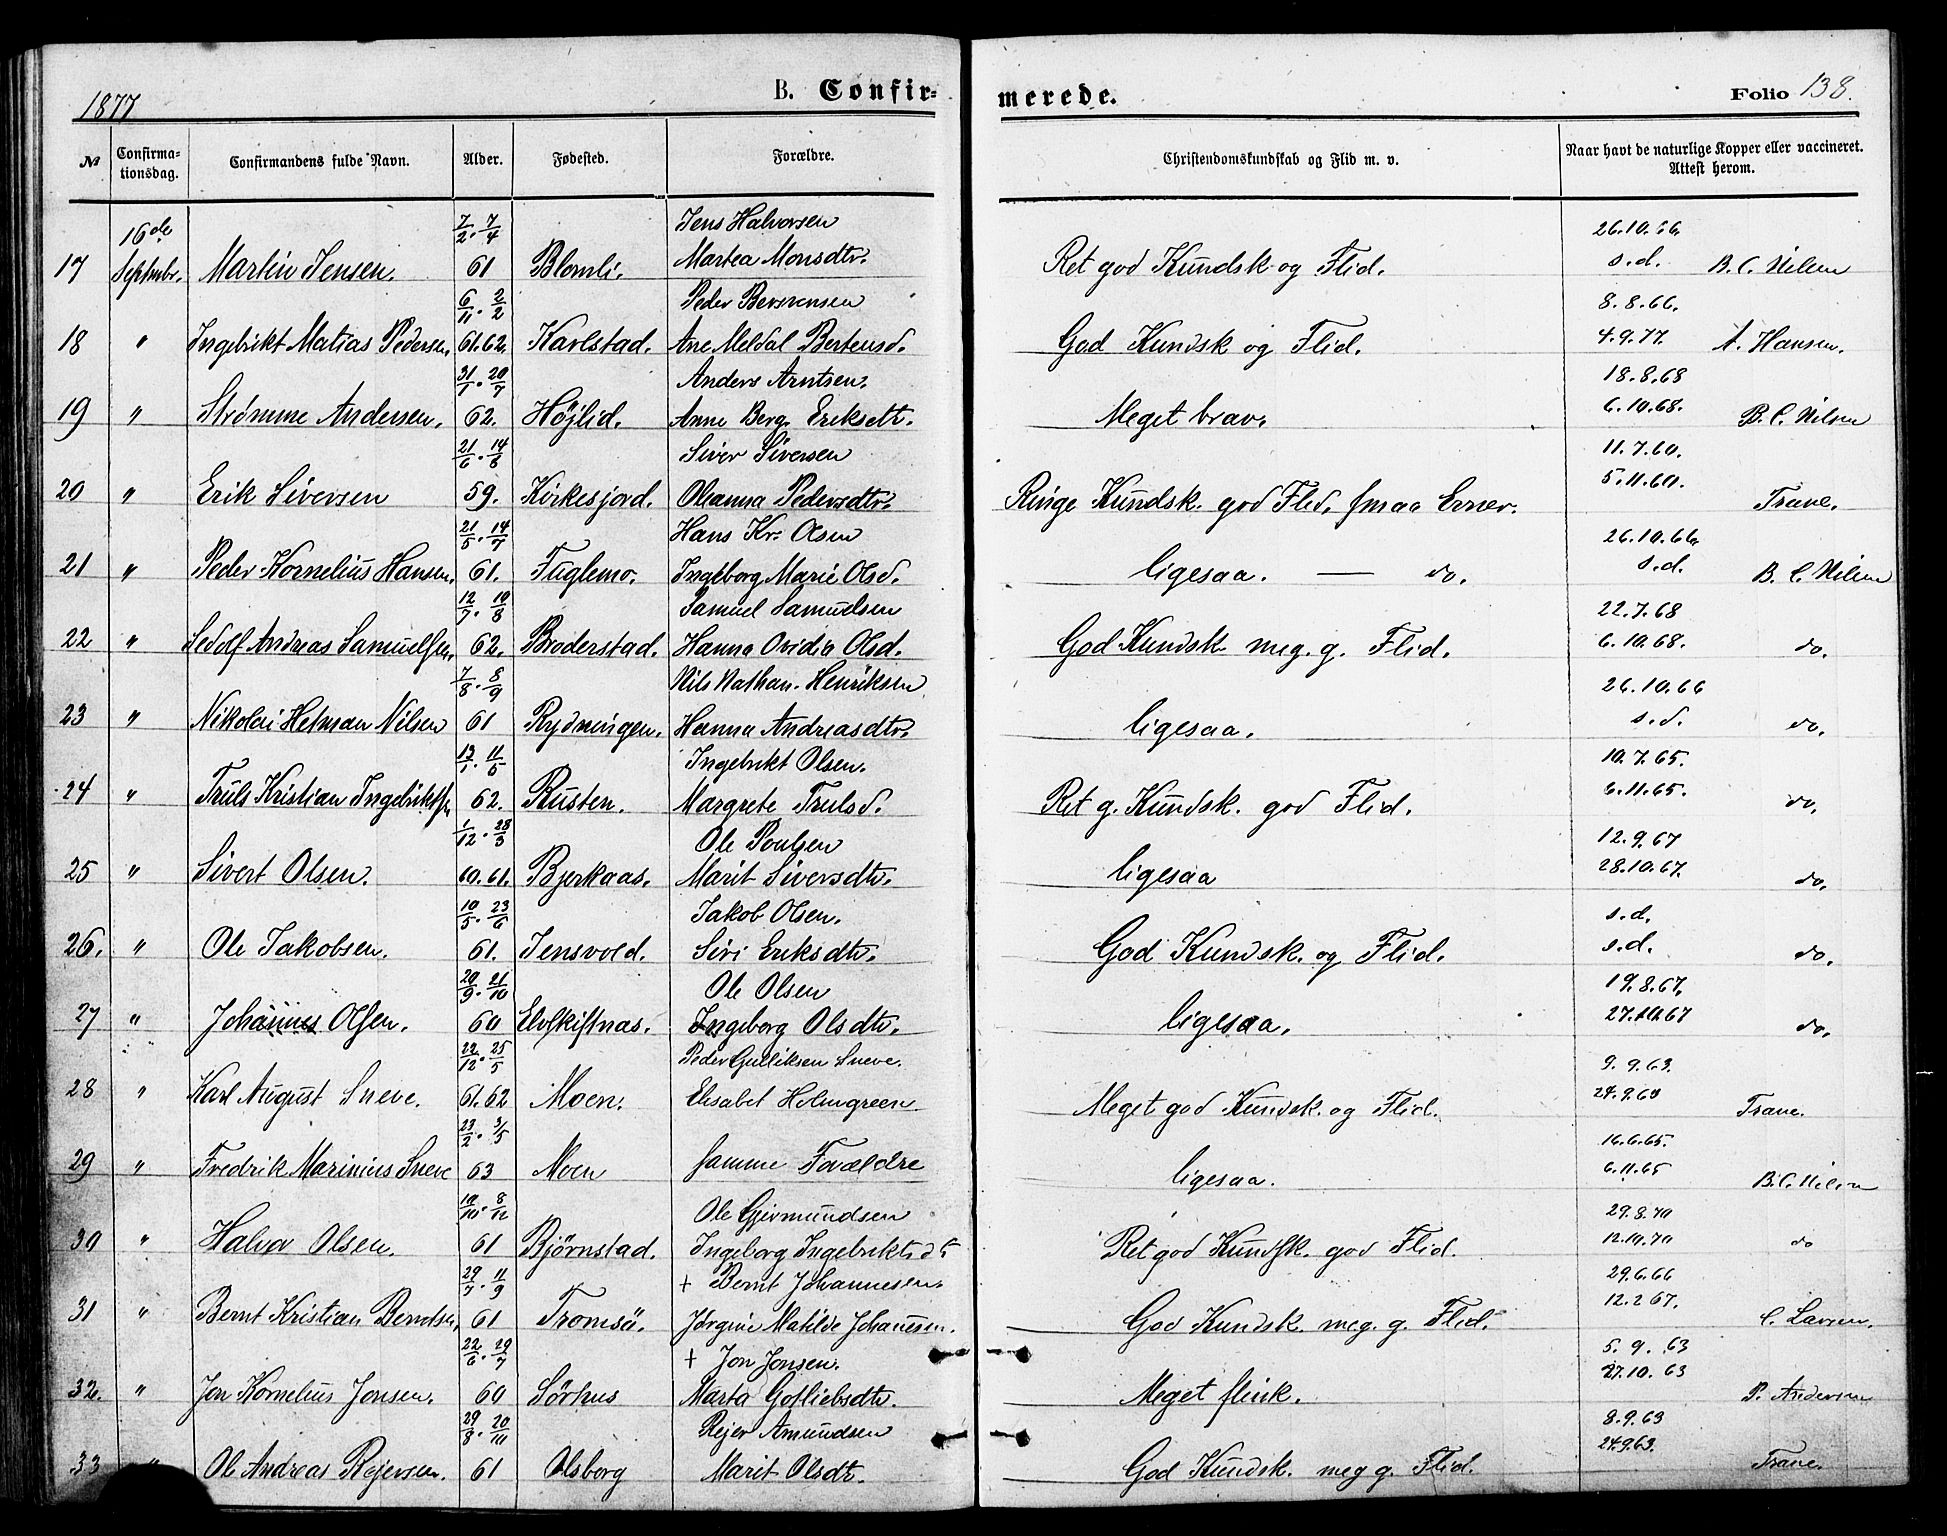 1877 B. Confir- merede. Folio 138.
№ Confirmationsdag. Confirmandens fulde Navn. Alder. Fødested. Forældre. Christendomskundskab og Flid m. v. Naar havt de naturlige Kopper eller vaccineret. Attest herom.
16de 7/2 . 7/4 Jens Halvorsen 26.10.66.
17 Septmbr. Martin Jensen. 61 Blomli. Martea Monsdtr. Ret god Kundsk og Flid. s.d. B. C. Nilsen
6/11 . 2/2 Peder Bersvensen 8.8.66.
18 " Ingebrikt Matias Pedersen 61.62. Karlstad. Ane Meldal Bertensd. God Kundsk og Flid. 4.9.77. A. Hansen.
31/1 . 20/7 Anders Arntsen. 18.8.68
19 " Strømme Andersen. 62. Højlid. Anne Berg. Eriksdtr. Meget brav. 6.10.68. B. C. Nilsen
21/6 . 14/8 Siver Siversen 11.7.60.
20 " Erik Siversen 59. Kirkesjord. Oleanna Pedersdtr. Ringe Kundsk. god Flid, smaa Evner. 5.11.60. Trane.
21/5 . 14/7 Hans Kr. Olsen 26.10.66.
21 " Peder Kornelius Hansen. 61. Fuglemo. Ingeborg Marie Olsd. ligesaa. — do. s.d. B. C. Nilsen
12/7 . 10/8 Samuel Samuelsen 22.7.68
22 " Sedolf Andreas Samuelsen. 62. Broderstad. Hanna Ovidia Olsd. God Kundsk meg. g. Flid. 6.10.68. do.
7/8 . 8/9 Nils Nathan. Henriksen 26.10.66
23 " Nikolai Hetman Nilsen 61 Rydningen. Hanna Andreasdtr. ligesaa. s.d. do.
13/1 . 11/5 Ingebrikt Olsen. 10.7.65.
24 " Truls Kristian Ingebriktsn 62. Rusten. Margrete Trulsd. Ret g. Kundsk. god Flid. 6.11.65. do.
1/12 . 28/3 Ole Poulsen 12.9.67
25 " Sivert Olsen. 60.61. Bjerkaas. Marit Siversdtr. ligesaa 28.10.67. do.
10/5 . 23/6 Jakob Olsen. s.d.
26. " Ole Jakobsen. 61. Jensvold. Siri Eriksdtr. God Kundsk. og Flid. s.d. do.
20/9 . 21/10 Ole Olsen 19.8.67.
27 " Johannes Olsen. 60 Elvskiftnas. Ingeborg Olsdtr. ligesaa. 27.10.67 do.
22/12 . 25/5 Peder Gulliksen Sneve. 9.9.63.
28 " Karl August Sneve. 61.62 Moen. Elisabet Holmgreen. Meget god Kundsk. og Flid. 24.9.63 Trane.
23/2 . 3/5 16.6.65.
29 " Fredrik Marinius Sneve 63 Moen samme Forældre ligesaa. 6.11.65 B.C. Nilsen
10/10 . 8/12 Ole Gjermundsen 29.8.70
30 " Halvor Olsen. 61 Bjørnstad. Ingeborg Ingebriktsdtr Ret god Kundsk. god Flid. 12.10.70 do
29/7 . 11/9 + Bernt Johannesen. 29.6.66
31 " Bernt Kristian Berntsen, 61 Tromsö. Jørgine Matilde Johannesen. God Kundsk. meg. g. Flid. 12.2 67. C. Larsen.
22/6 . 29/7 + Jon Jonsen. 5.9.63
32. " Jon Kornelius Jonsen. 60 Sörhus Marta Gotliebsdtr. Meget flink. 27.10.63 P. Andersen
29/8 . 20/10 Rejer Amundsen 8.9.63
33 " Ole Andreas Rejersen. 61 Olsborg Marit Olsdt. God Kundsk. meg g. Flid. 24.9.63. Trane.